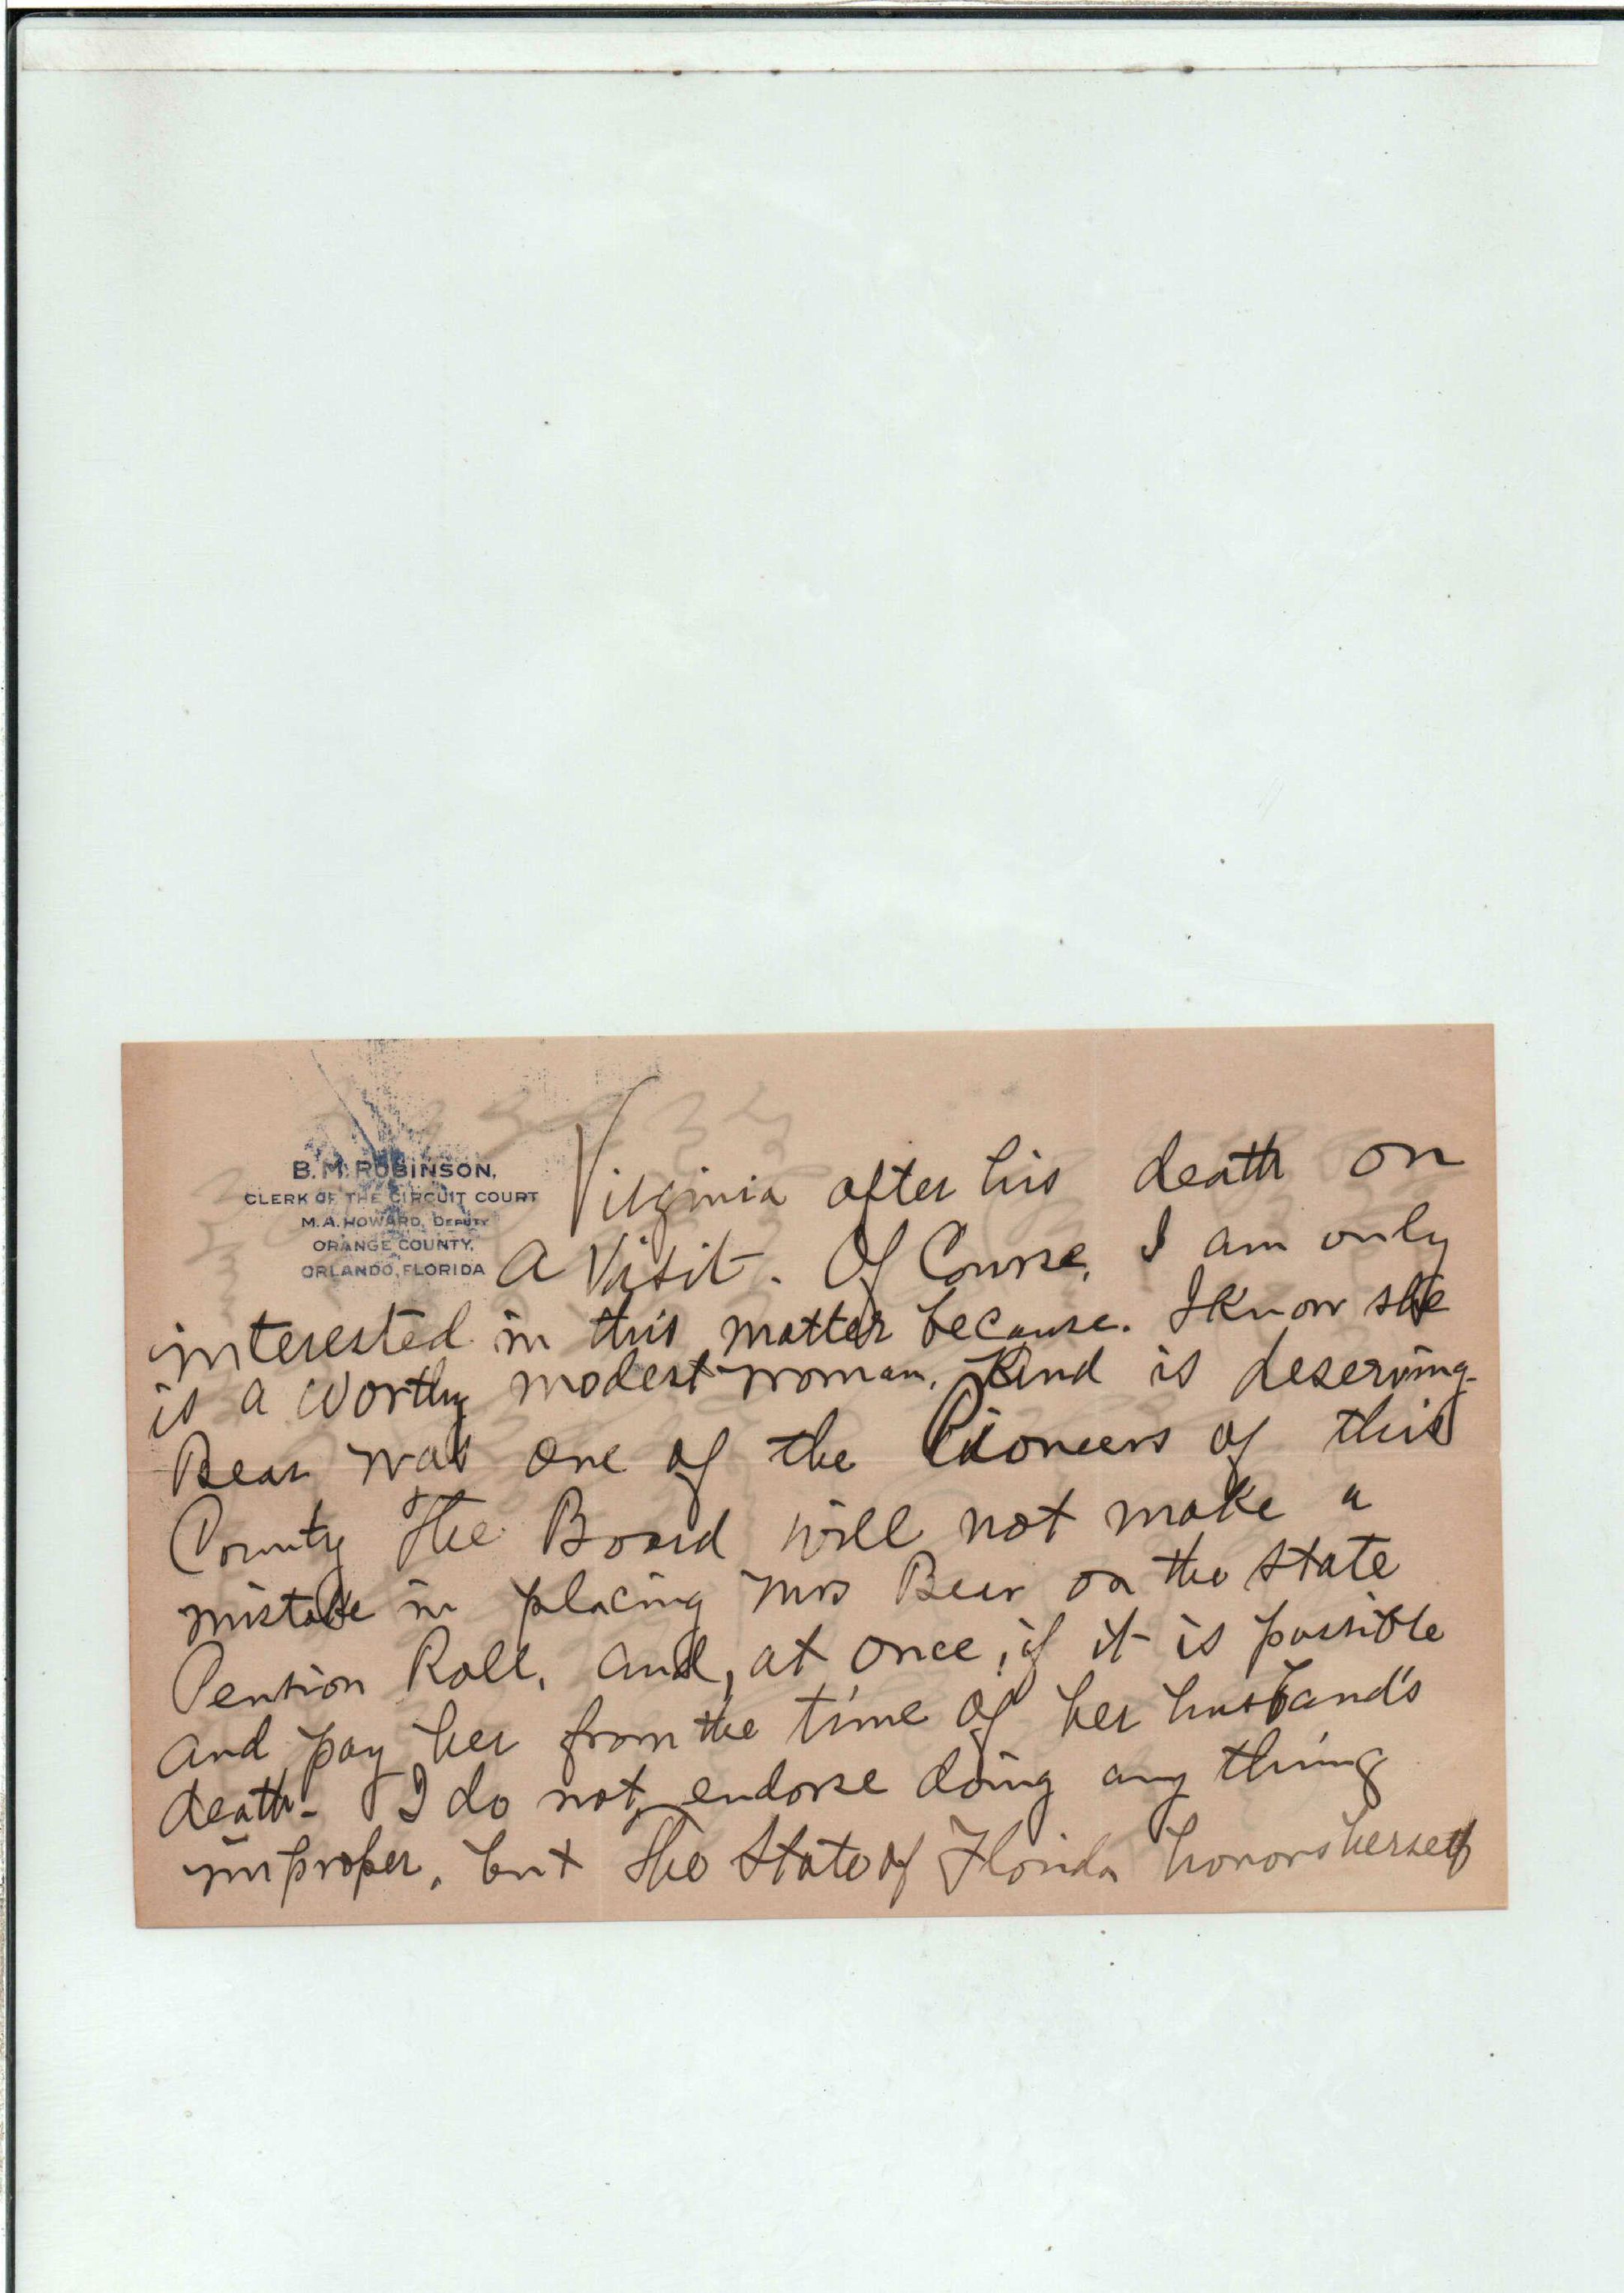 B. M. ROBINSON,
CLERK OF THE CIRCUIT COURT
M. A. HOWARD, DEPUTY
ORANGE COUNTY,
ORLANDO, FLORIDA
Virginia after his death on
a Visit. Of Course, I am only
interested in this matter because. I Know she
is a worthy modest woman, and is deserving-
Bear was one of the Pioneers of this
County The Board will not make a
mistake in placing Mrs Bear on the State
Pension Roll, and, at once, if it is possible
and pay her from the time of her husband's
death- I do not endorse doing any thing
improper, but The State of Florida honors herself